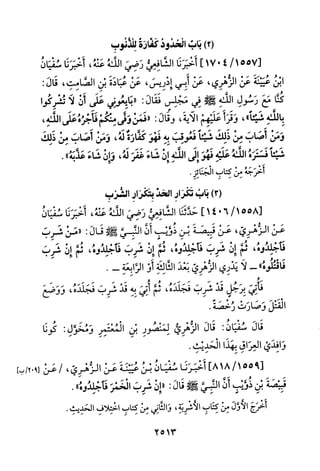 (٢) بَابُ الْحُدُودُ كَفَّارَةٌ لِلذُّنُوبِ
[١٧٠٤/١٥٥٧] أَخْبَرَنَا الشَّافِعِيُّ رَضِيَ اللَّهُ عَنْهُ، أَخْبَرَنَا سُفْيَانُ
ابْنُ عُيَيْنَةَ عَنِ الزُّهْرِيِّ، عَنْ أَبِي إِدْرِيسَ، عَنْ عُبَادَةَ بْنِ الصَّامِتِ، قَالَ:
كُنَّا مَعَ رَسُولِ اللَّهِ ﷺ فِي مَجْلِسٍ فَقَالَ: «بَايِعُونِي عَلَى أَنْ لَا تُشْرِكُوا
بِاللَّهِ شَيْئاً»، وَقَرَأَ عَلَيْهِمُ الآيَةَ، وقَالَ: «فَمَنْ وَفَى مِنْكُمْ فَأَجْرُهُ عَلَى اللَّهِ،
وَمَنْ أَصَابَ مِنْ ذَلِكَ شَيْئاً فَعُوقِبَ بِهِ فَهُوَ كَفَّارَةٌ لَهُ، وَمَنْ أَصَابَ مِنْ ذَلِكَ
شَيْئاً فَسَتَرَهُ اللَّهُ عَلَيْهِ فَهُوَ إِلَى اللَّهِ إِنْ شَاءَ غَفَرَ لَهُ، وَإِنْ شَاءَ عَذَّبَهُ».
أَخْرَجَهُ مِنْ كِتَابِ الْجَنَائِزِ.
(٣) بَابُ تَكْرَارِ الحَدِّ بِتَكْرَارِ الشُّرْبِ
[١٤٠٦/١٥٥٨] حَدَّثَنَا الشَّافِعِيُّ رَضِيَ اللَّهُ عَنْهُ، أَخْبَرَنَا سُفْيَانُ
عَنِ الزُّهْرِيِّ، عَنْ قَبِيصَةَ بْنِ ذُؤَيْبٍ أَنَّ النَّبِيَّ ﷺ قَالَ: «مَنْ شَرِبَ
فَاجْلِدُوهُ، ثُمَّ إِنْ شَرِبَ فَاجْلِدُوهُ، ثُمَّ إِنْ شَرِبَ فَاجْلِدُوهُ، ثُمَّ إِنْ شَرِبَ
فَاقْتُلُوهُ» – لَا يَدْرِي الزُّهْرِيُّ بَعْدَ الثَّالِثَةِ أَوْ الرَّابِعَةِ –.
فَأُتِيَ بِرَجُلٍ قَدْ شَرِبَ فَجَلَدَهُ، ثُمَّ أُتِيَ بِهِ قَدْ شَرِبَ فَجَلَدَهُ، وَوَضَعَ
الْقَتْلَ وَصَارَتْ رُخْصَةً.
قَالَ سُفْيَانُ: قَالَ الزُّهْرِيُّ لِمَنْصُورِ بْنِ الْمُعْتَمِرِ وَمُخَوَّلٍ: كُونَا
وَافِدَيِ العِرَاقِ بِهَذَا الْحَدِيثِ.
[٨١٨/١٥٥٩] أَخْبَرَنَا سُفْيَانُ بْنُ عُيَيْنَةَ عَنِ الزُّهْرِيِّ، / عَنْ [٢٠٩/ب]
قَبِيْصَةَ بْنِ ذُؤَيْبٍ أَنَّ النَّبِيَّ ﷺ قَالَ: «إِنْ شَرِبَ الْخَمْرَ فَاجْلِدُوهُ».
أَخْرَجَ الأَوَّلَ مِنْ كِتَابِ الأَشْرِبَةِ، وَالثَّانِي مِنْ كِتَابِ اخْتِلافِ الحَدِيثِ.
٢٥١٣